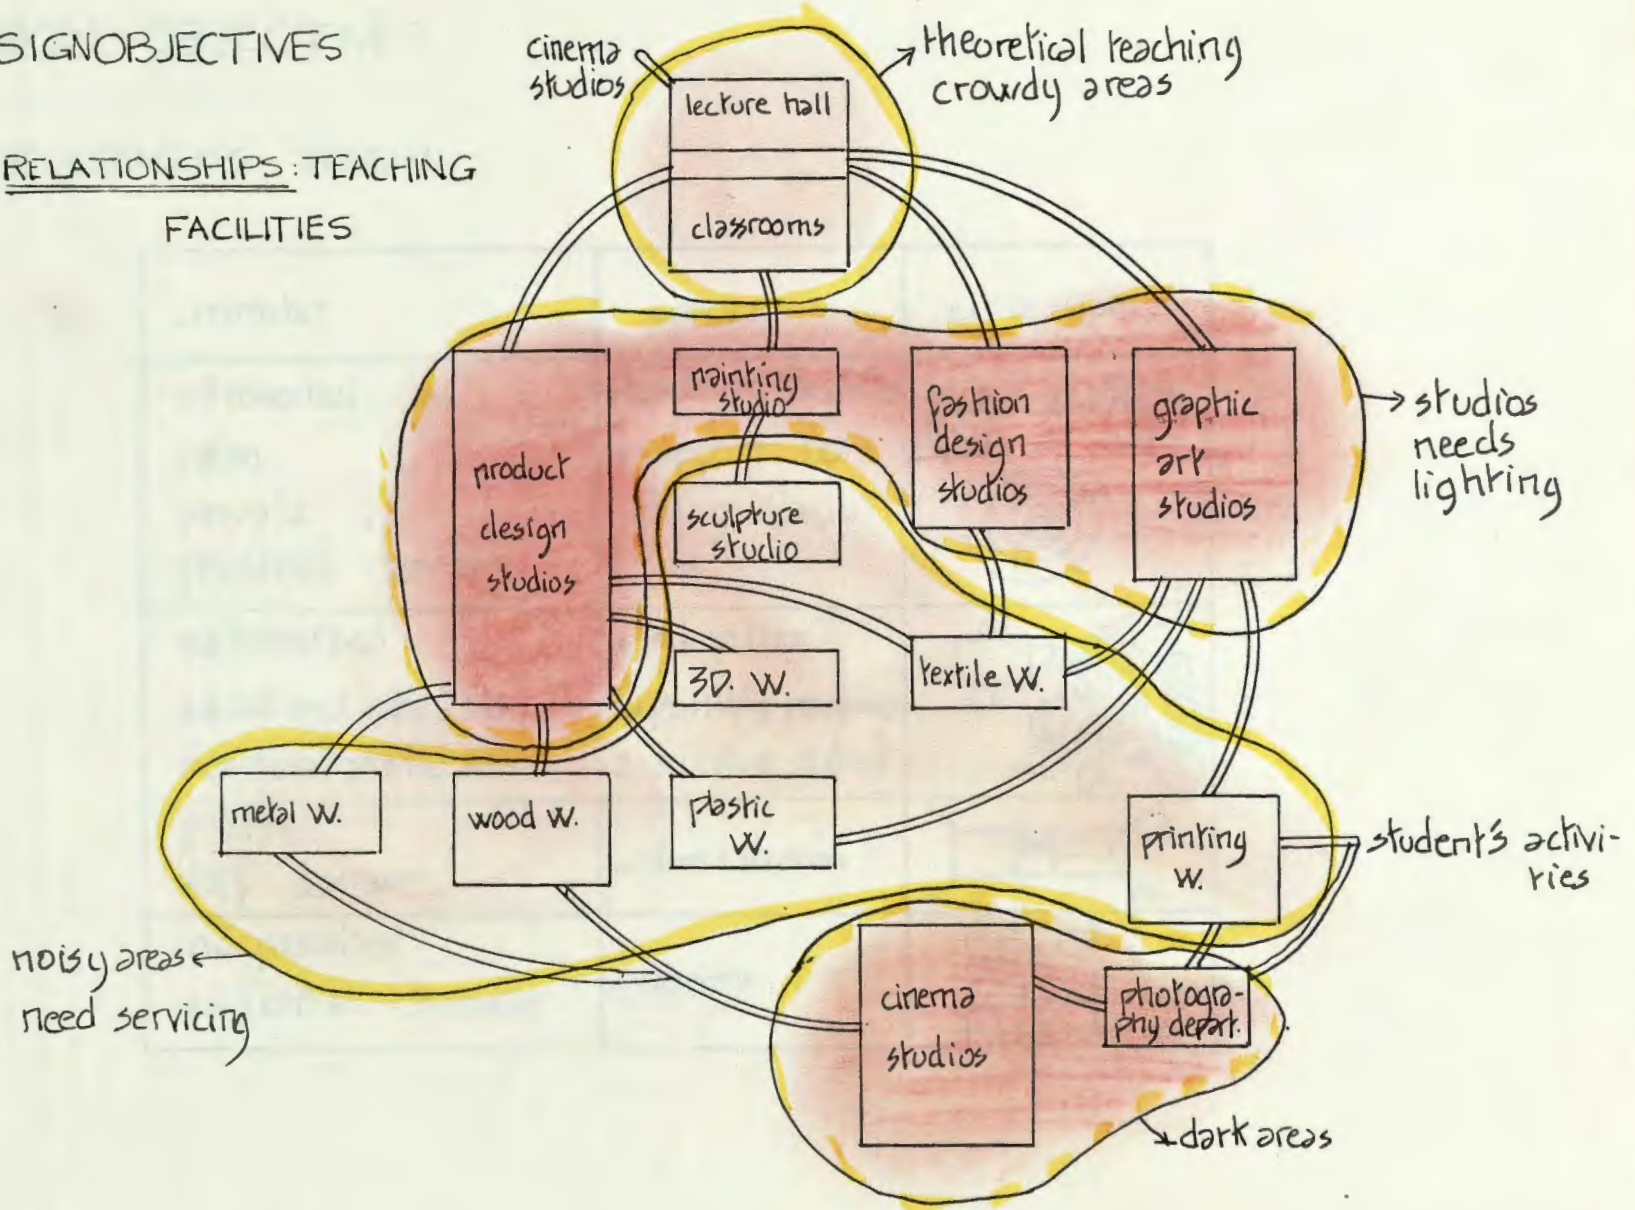 SIGNOBJECTIVES
RELATIONSHIPS: TEACHING
FACILITIES
cinema
studios
lecture hall
classrooms
theoretical teaching
crowdy areas
product
design
studios
painting
studio
sculpture
studio
fashion
design
studios
graphic
art
studios
studios
needs
lighting
3D. W.
textile W.
metal W.
wood W.
plastic
W.
printing
W.
student's activi-
ties
noisy areas
need servicing
cinema
studios
photogra-
phy depart.
dark areas